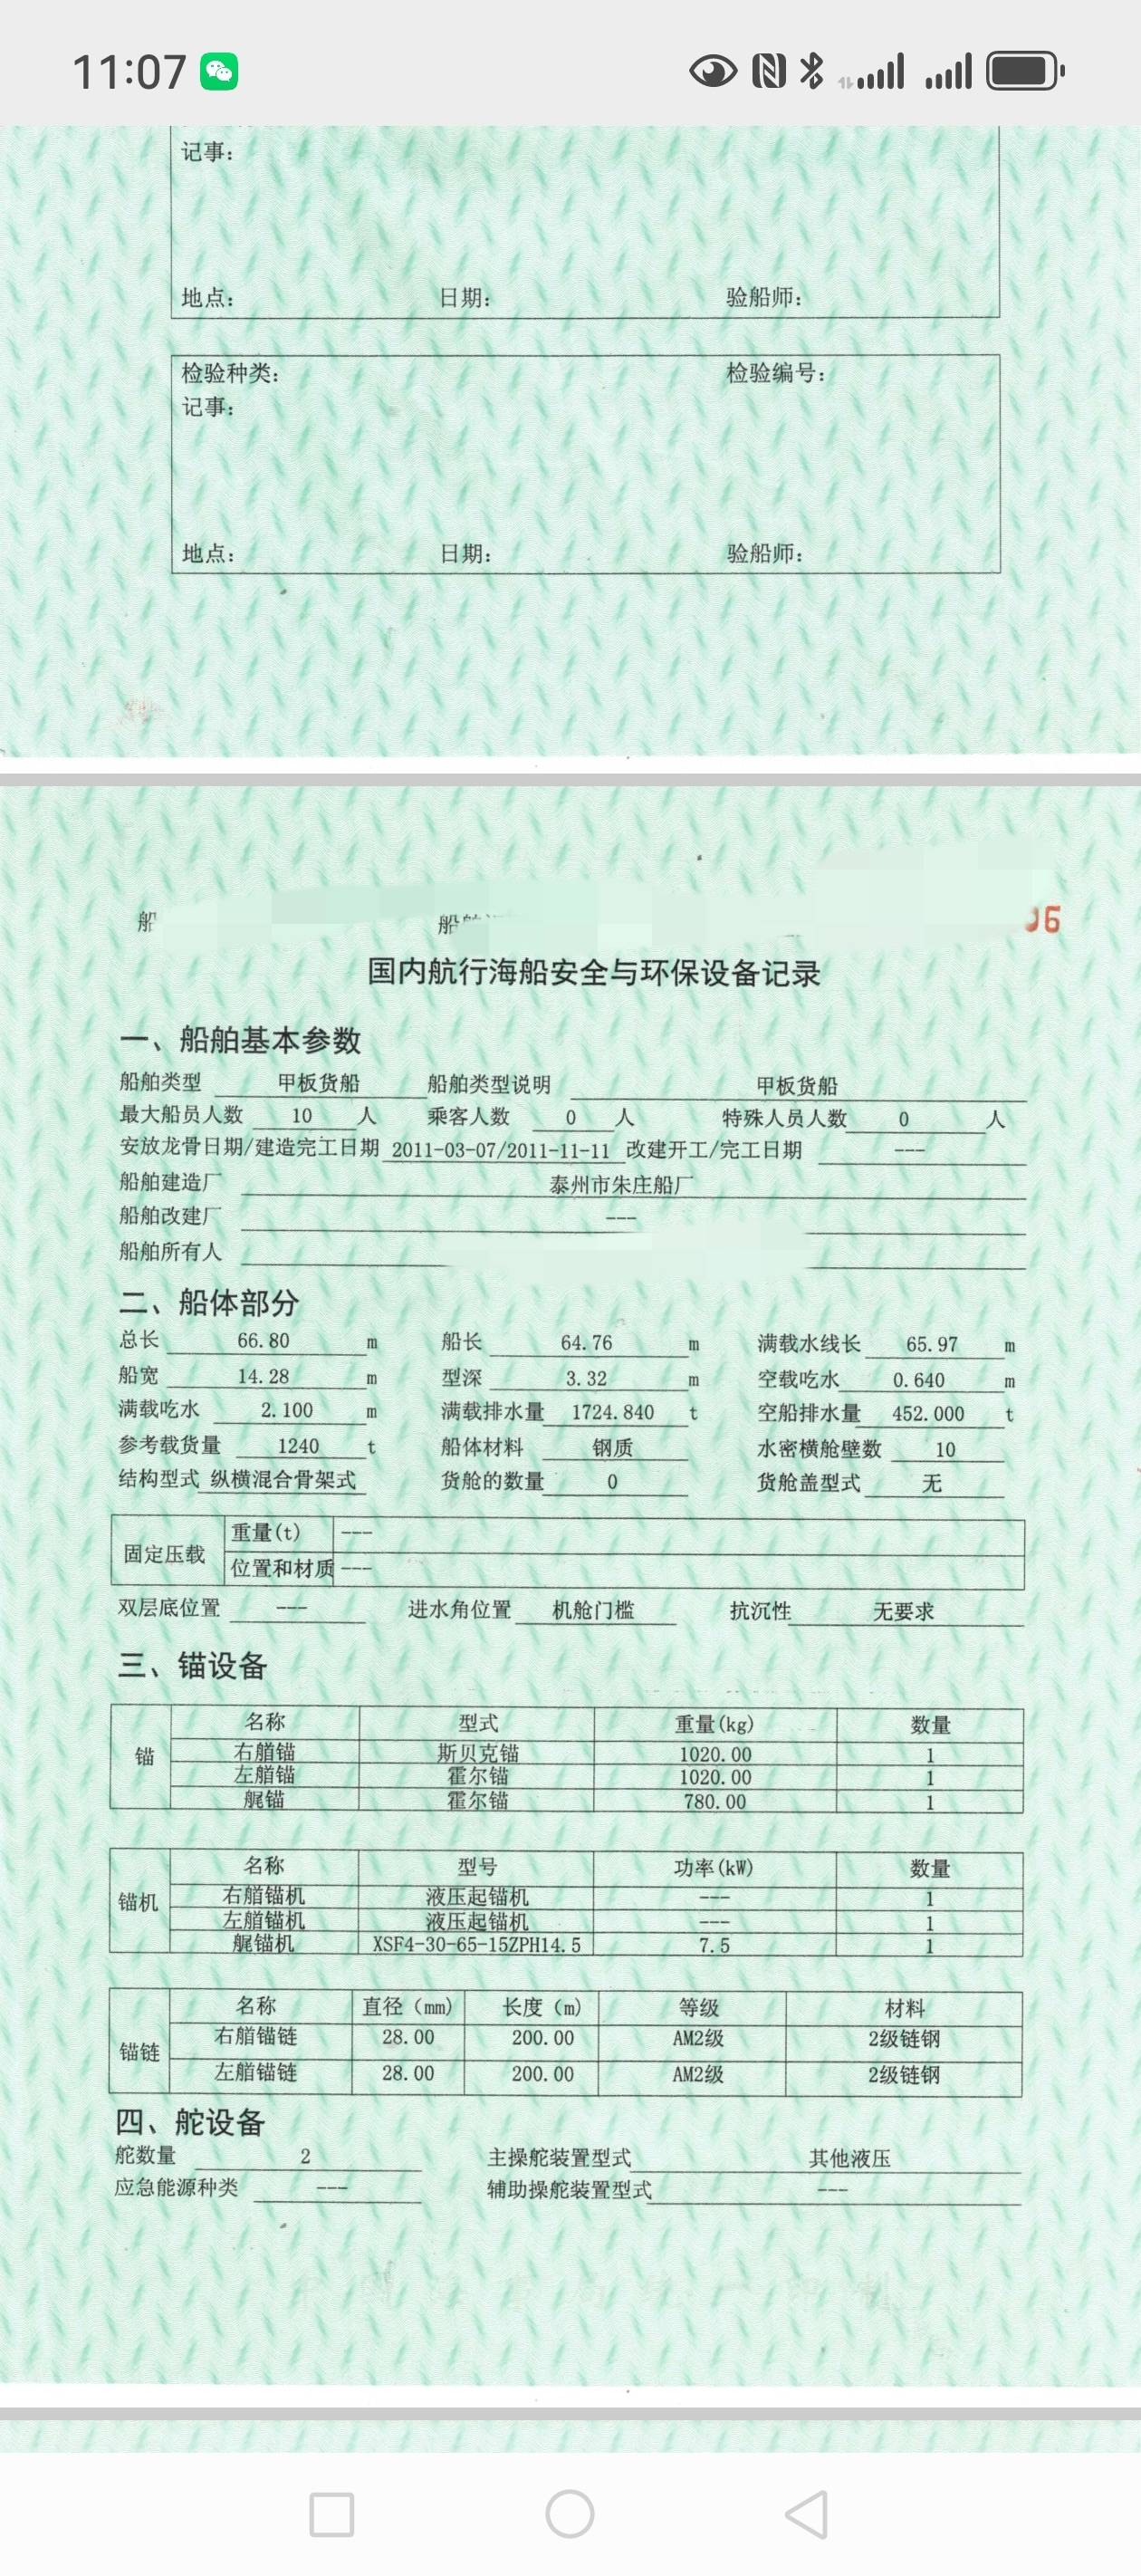 11:07
记事：
地点： 日期： 验船师：
检验种类： 检验编号：
记事：
地点： 日期： 验船师：
船 船舶 06
国内航行海船安全与环保设备记录
一、船舶基本参数
船舶类型 甲板货船 船舶类型说明 甲板货船
最大船员人数 10 人 乘客人数 0 人 特殊人员人数 0 人
安放龙骨日期/建造完工日期 2011-03-07/2011-11-11 改建开工/完工日期 ---
船舶建造厂 泰州市朱庄船厂
船舶改建厂 ---
船舶所有人
二、船体部分
总长 66.80 m 船长 64.76 m 满载水线长 65.97 m
船宽 14.28 m 型深 3.32 m 空载吃水 0.640 m
满载吃水 2.100 m 满载排水量 1724.840 t 空船排水量 452.000 t
参考载货量 1240 t 船体材料 钢质 水密横舱壁数 10
结构型式 纵横混合骨架式 货舱的数量 0 货舱盖型式 无
固定压载 重量(t) ---
位置和材质 ---
双层底位置 --- 进水角位置 机舱门槛 抗沉性 无要求
三、锚设备
锚 名称 型式 重量(kg) 数量
右艏锚 斯贝克锚 1020.00 1
左艏锚 霍尔锚 1020.00 1
艉锚 霍尔锚 780.00 1
锚机 名称 型号 功率(kW) 数量
右艏锚机 液压起锚机 --- 1
左艏锚机 液压起锚机 --- 1
艉锚机 XSF4-30-65-15ZPH14.5 7.5 1
锚链 名称 直径（mm） 长度（m） 等级 材料
右艏锚链 28.00 200.00 AM2级 2级链钢
左艏锚链 28.00 200.00 AM2级 2级链钢
四、舵设备
舵数量 2 主操舵装置型式 其他液压
应急能源种类 --- 辅助操舵装置型式 ---